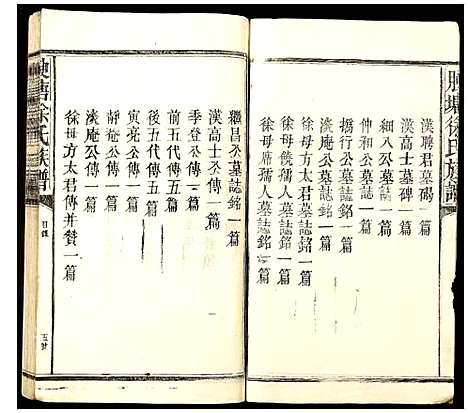 徐氏族譜
漢聘君墓碣一篇
漢高士墓碑一篇
細八公墓誌一篇
仲和公墓誌一篇
橋行公墓誌銘一篇
淡庵公墓誌銘一篇
徐母方太君墓誌銘一篇
徐母饒孺人墓誌銘一篇
徐母席孺人墓誌銘一篇
繼昌公墓誌銘一篇
漢高士公傳一篇
季登公傳一篇
前五代傳五篇
後五代傳五篇
寅亮公傳一篇
靜菴公傳一篇
淡庵公傳一篇
徐母方太君傳并贊一篇
徐氏族譜
目錄